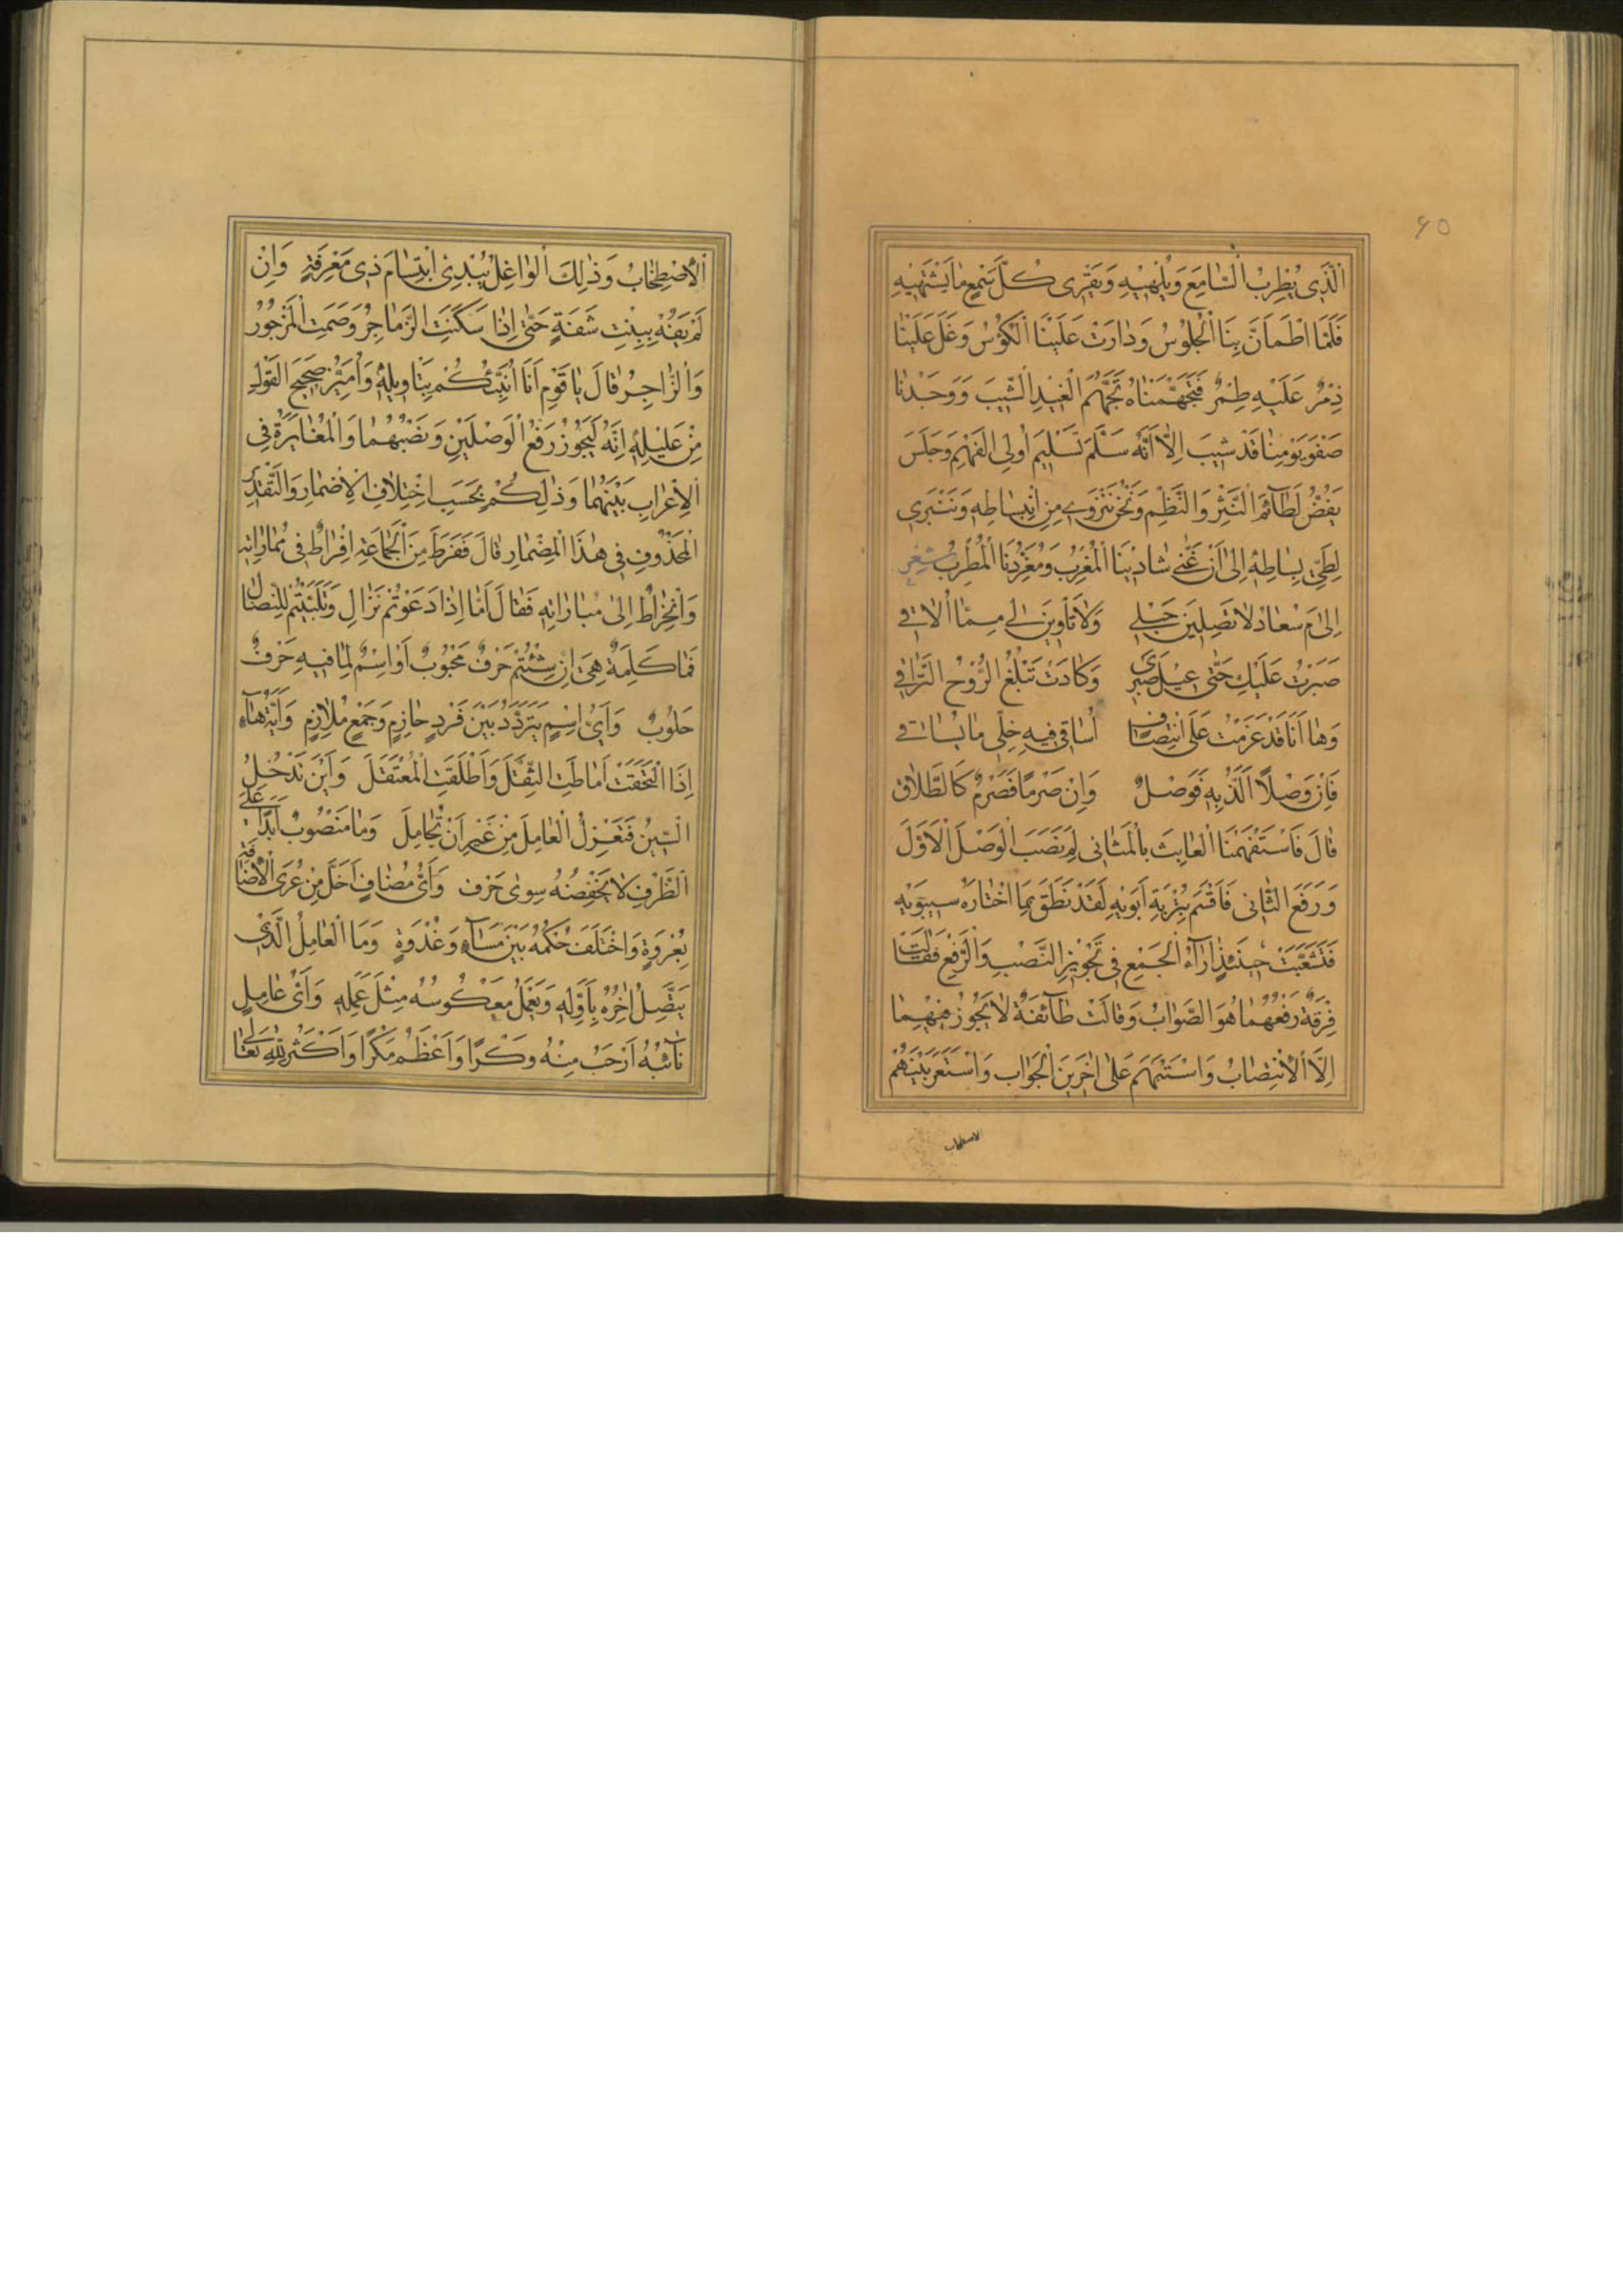 ٦٥
اَلَّذِى يُطْرِبُ السَّامِعَ وَيُلْهِيْهِ وَيَقْرِى كُلَّ سَمْعٍ مَا يَشْتَهِيْهِ
فَلَمَّا اطْمَاَنَّ بِنَا الْجُلُوْسُ وَدَارَتْ عَلَيْنَا الْكُؤُسُ وَغَلَ عَلَيْنَا
ذِمْرٌ عَلَيْهِ طِمْرٌ فَتَجَهَّمْنَاهُ تَجَهُّمَ الْغِيْدِ الشِّيْبَ وَوَجَدْنَا
صَفْوَ يَوْمِنَا قَدْ شِيْبَ اِلَّا اَنَّهُ سَلَّمَ تَسْلِيْمَ اُولِى الْفَهْمِ وَجَلَسَ
يَفُضُّ لَطَآئِمَ النَّثْرِ وَالنَّظْمِ وَنَحْنُ نَنْزَوِى مِنِ انْبِسَاطِهِ وَنَنْبَرِى
لِطَىِّ بِسَاطِهِ اِلَى اَنْ غَنّٰى شَادِيْنَا الْمُغْرِبُ وَمُغَرِّدُنَا الْمُطْرِبُ شعر
اِلَامَ سُعَادُ لَا تَصِلِيْنَ حَبْلِى وَلَا تَاْوِيْنَ لِى مِمَّا اُلَاقِى
صَبَرْتُ عَلَيْكِ حَتّٰى عِيْلَ صَبْرِى وَكَادَتْ تَبْلُغُ الرُّوْحُ التَّرَاقِى
وَهَا اَنَا قَدْ عَزَمْتُ عَلَى انْتِصَافٍ اُسَاقِى فِيْهِ خِلِّى مَا يُسَاقِى
فَاِنْ وَصْلًا اَلَذُّ بِهِ فَوَصْلٌ وَاِنْ صَرْمًا فَصَرْمٌ كَالطَّلَاقِ
قَالَ فَاسْتَفْهَمْنَا الْعَابِثَ بِالْمَثَانِى لِمَ نَصَبَ الْوَصْلَ الْاَوَّلَ
وَرَفَعَ الثَّانِى فَاَقْسَمَ بِتُرْبَةِ اَبَوَيْهِ لَقَدْ نَطَقَ بِمَا اخْتَارَهُ سِيبَوَيْهِ
فَتَشَعَّبَتْ حِيْنَئِذٍ اٰرَآءُ الْجَمْعِ فِى تَجْوِيْزِ النَّصْبِ وَالرَّفْعِ فَقَالَتْ
فِرْقَةٌ رَفْعُهُمَا هُوَ الصَّوَابُ وَقَالَتْ طَآئِفَةٌ لَا يَجُوْزُ فِيْهِمَا
اِلَّا الْاِنْتِصَابُ وَاسْتَبْهَمَ عَلَى اٰخَرِيْنَ الْجَوَابُ وَاسْتَعَرَ بَيْنَهُمْ
الاصطخاب
اَلْاِصْطِخَابُ وَذٰلِكَ الْوَاغِلُ يُبْدِى ابْتِسَامَ ذِى مَعْرِفَةٍ وَاِنْ
لَمْ يَفُهْ بِبِنْتِ شَفَةٍ حَتّٰى اِذَا سَكَنَتِ الزَّمَاجِرُ وَصَمَتَ الْمَزْجُوْرُ
وَالزَّاجِرُ قَالَ يَا قَوْمِ اَنَا اُنَبِّئُكُمْ بِتَاْوِيلِهِ وَاُمَيِّزُ صَحِيْحَ الْقَوْلِ
مِنْ عَلِيْلِهِ اِنَّهُ لَيَجُوْزُ رَفْعُ الْوَصْلَيْنِ وَنَصْبُهُمَا وَالْمُغَايَرَةُ فِى
الْاِعْرَابِ بَيْنَهُمَا وَذٰلِكُمْ بِحَسَبِ اخْتِلَافِ الْاِضْمَارِ وَالتَّقْدِيْرِ
الْمَحْذُوْفِ فِى هٰذَا الْمِضْمَارِ قَالَ فَفَرَطَ مِنَ الْجَمَاعَةِ اِفْرَاطٌ فِى مُمَارَاتِهِ
وَانْخِرَاطٌ اِلَى مُبَارَاتِهِ فَقَالَ اَمَّا اِذَا دَعَوْتُمْ نَزَالِ وَتَلَبَّبْتُمْ لِلنِّضَالِ
فَمَا كَلِمَةٌ هِىَ اِنْ شِئْتُمْ حَرْفٌ مَحْبُوْبٌ اَوِ اسْمٌ لِمَا فِيْهِ حَرْفٌ
حَلُوْبٌ وَاَىُّ اسْمٍ يَتَرَدَّدُ بَيْنَ فَرْدٍ حَازِمٍ وَجَمْعٍ مُلَازِمٍ وَاَيَّةُ هَآءٍ
اِذَا الْتَحَقَتْ اَمَاطَتِ الثِّقَلَ وَاَطْلَقَتِ الْمُعْتَقَلَ وَاَيْنَ تَدْخُلُ
السِّيْنُ فَتَعْزِلُ الْعَامِلَ مِنْ غَيْرِ اَنْ تُجَامِلَ وَمَا مَنْصُوْبٌ اَبَدًا عَلَى
الظَّرْفِ لَا يَخْفِضُهُ سِوٰى حَرْفٍ وَاَىُّ مُضَافٍ اَخَلَّ مِنْ عُرَى الْاِضَافَةِ
بِعُرْوَةٍ وَاخْتَلَفَ حُكْمُهُ بَيْنَ مَسَآءٍ وَغُدْوَةٍ وَمَا الْعَامِلُ الَّذِى
يَتَّصِلُ اٰخِرُهُ بِاَوَّلِهِ وَيَعْمَلُ مَعْكُوْسُهُ مِثْلَ عَمَلِهِ وَاَىُّ عَامِلٍ
نَآئِبُهُ اَرْحَبُ مِنْهُ وَكْرًا وَاَعْظَمُ مَكْرًا وَاَكْثَرُ لِلّٰهِ تَعَالٰى